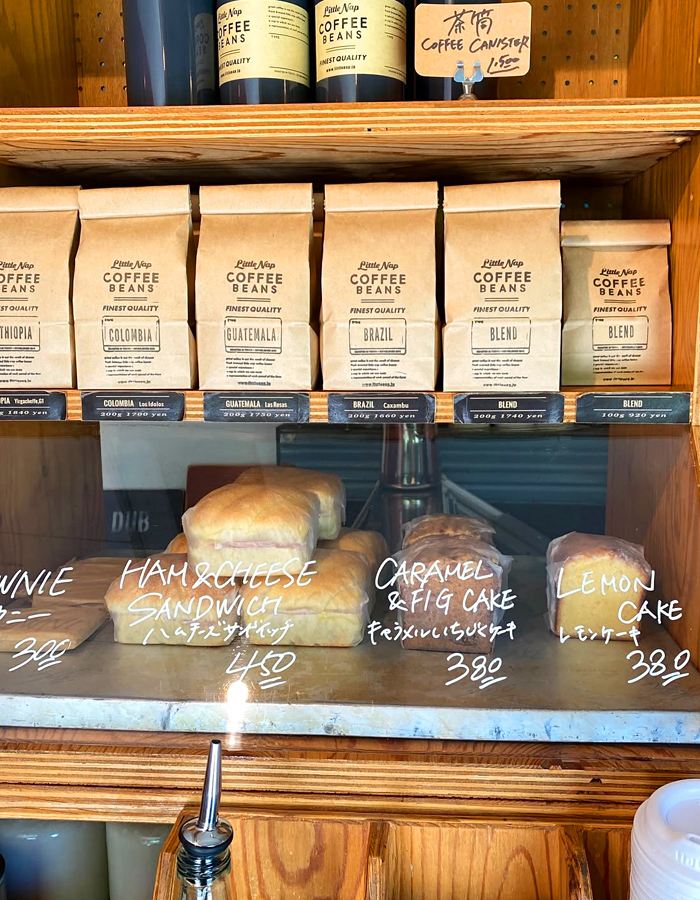 Little Nap
COFFEE
BEANS
FINEST QUALITY
www.littlenap.jp
Little Nap
COFFEE
BEANS
FINEST QUALITY
www.littlenap.jp
茶筒
COFFEE CANISTER
1,500
Little Nap
COFFEE
BEANS
FINEST QUALITY
THIOPIA
Little Nap
COFFEE
BEANS
FINEST QUALITY
COLOMBIA
www.littlenap.jp
Little Nap
COFFEE
BEANS
FINEST QUALITY
GUATEMALA
www.littlenap.jp
Little Nap
COFFEE
BEANS
FINEST QUALITY
BRAZIL
www.littlenap.jp
Little Nap
COFFEE
BEANS
FINEST QUALITY
BLEND
www.littlenap.jp
Little Nap
COFFEE
BEANS
FINEST QUALITY
BLEND
www.littlenap.jp
PIA Yirgacheffe,G1
1840 yen
COLOMBIA Los Idolos
200g 1700 yen
GUATEMALA Las Rosas
200g 1750 yen
BRAZIL Caxambu
200g 1660 yen
BLEND
200g 1740 yen
BLEND
100g 920 yen
DUB
WNIE
ウニー
300
HAM & CHEESE
SANDWICH
ハムチーズサンドイッチ
450
CARAMEL
& FIG CAKE
キャラメルいちじくケーキ
380
LEMON
CAKE
レモンケーキ
380